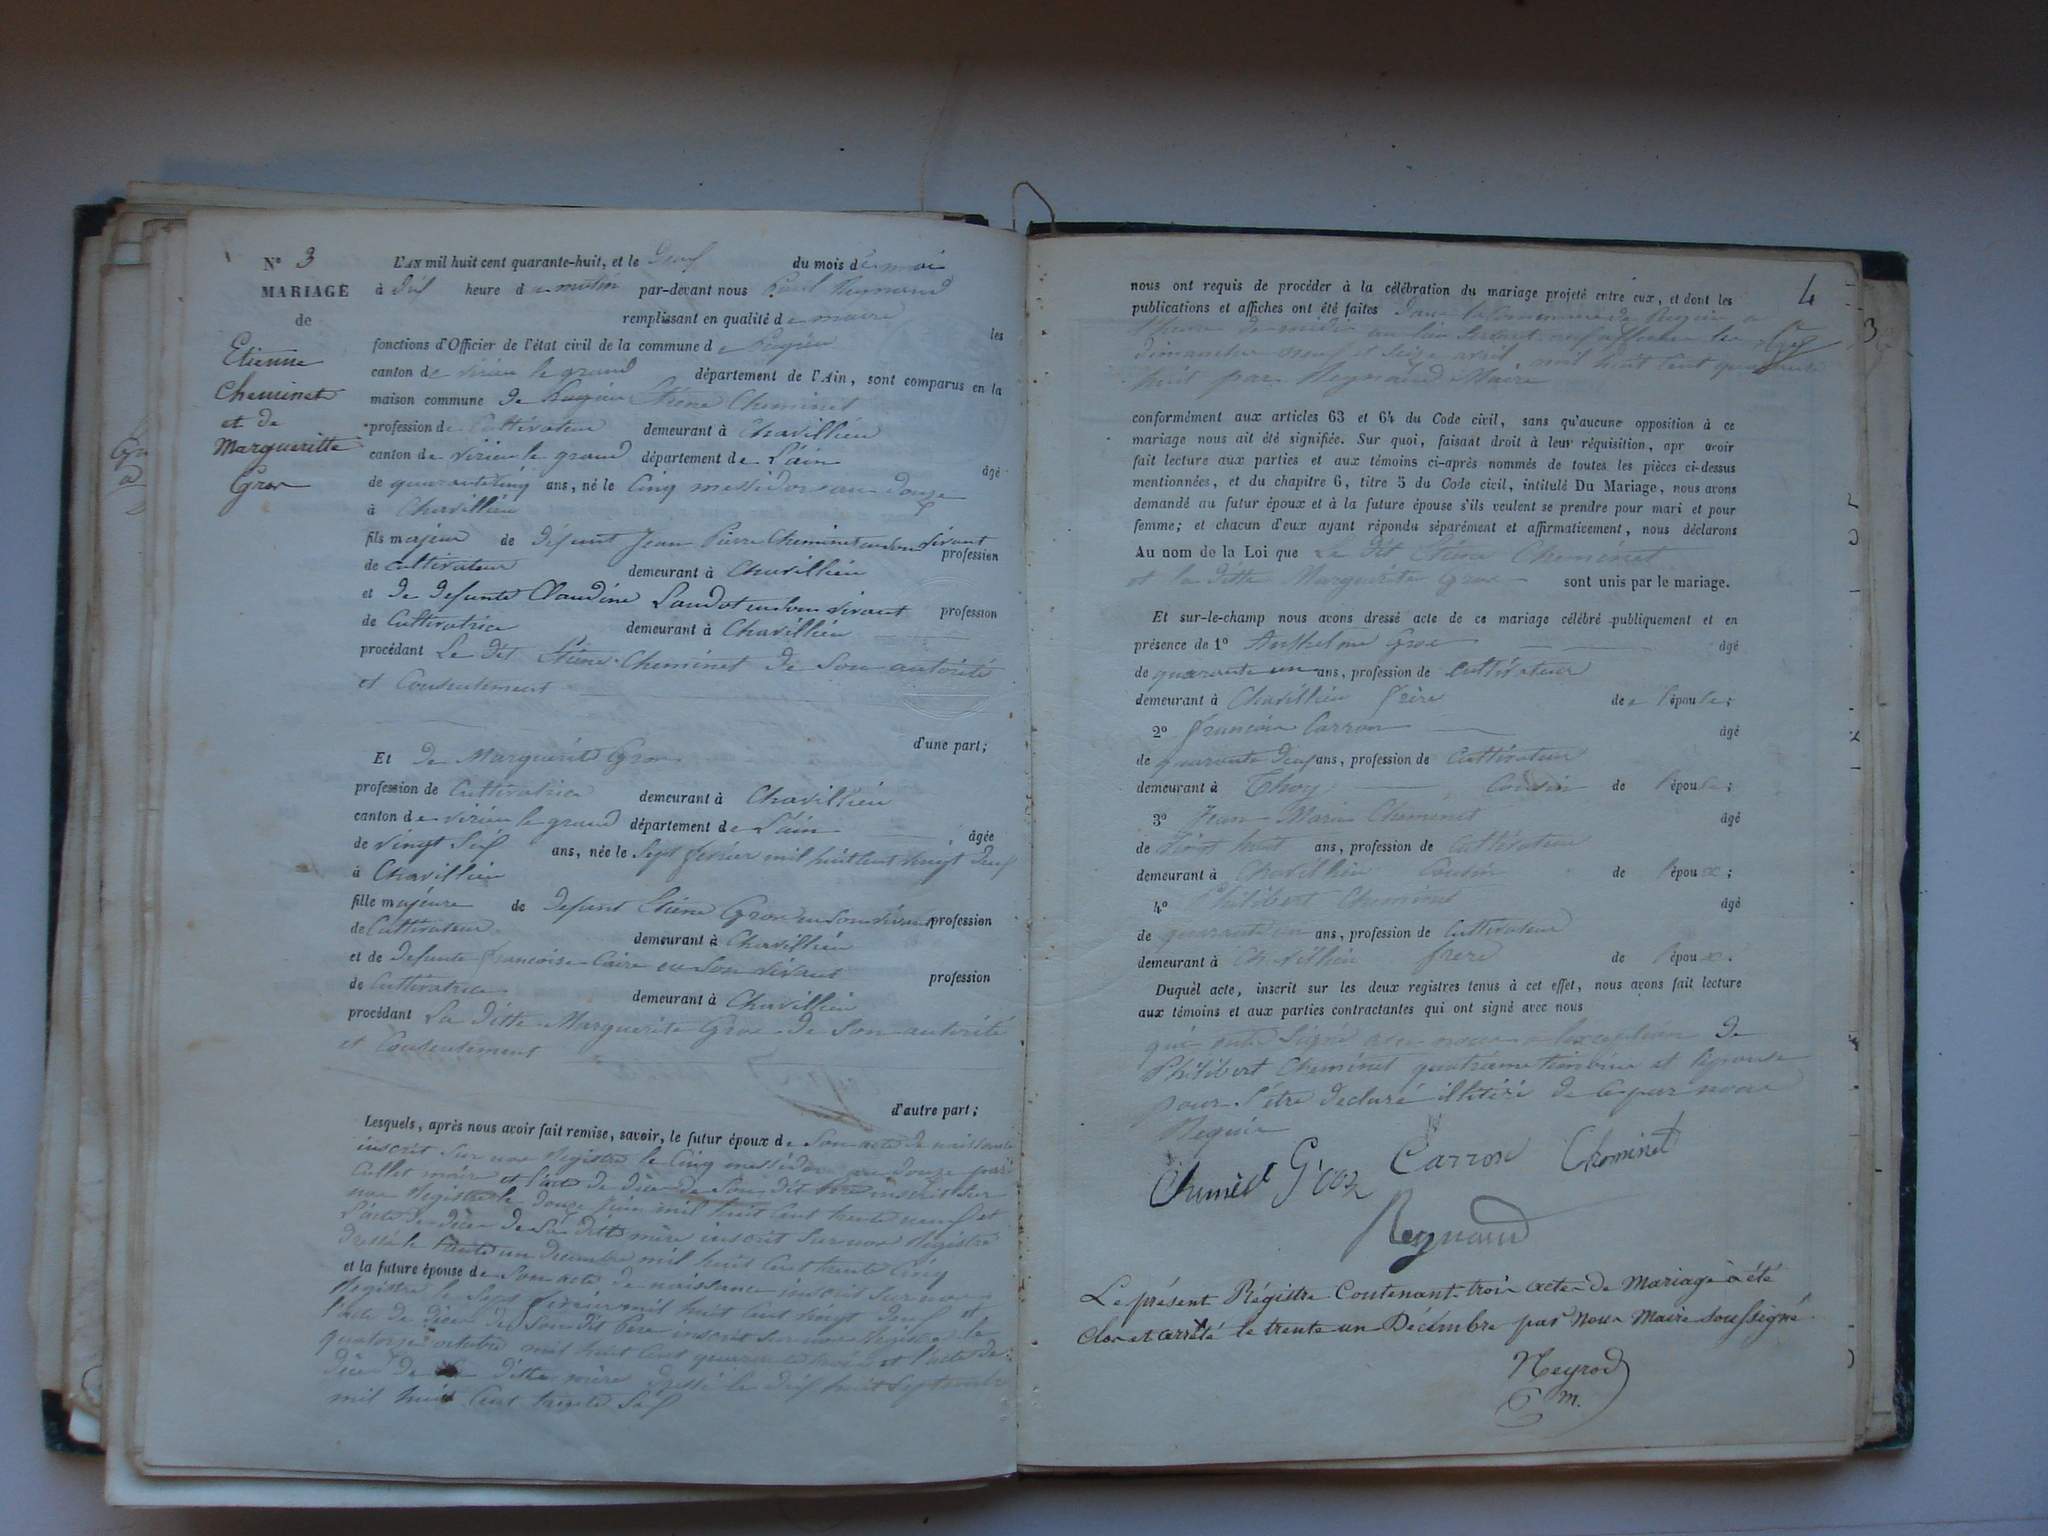 N° 3
MARIAGE
de
Etienne
Cheminet
et de
Margueritte
Grox
L'AN mil huit cent quarante-huit, et le deux du mois de mai
à dix heure de matin par-devant nous Paul Reynaud
remplissant en qualité de maire les
fonctions d'Officier de l'état civil de la commune de Pugieu
canton de virieu le grand département de l'Ain, sont comparus en la
maison commune de Pugieu Etiene Cheminet
profession de Cultivateur demeurant à Chavillieu
canton de virieu le grand département de L'ain âgé
de quarante cinq ans, né le Cinq messidor an douze
à Chavillieu
fils majeur de défunt Jean Pierre Cheminet en son vivant profession
de Cultivateur demeurant à Chavillieu
et de defunte Claudine Laudot en son vivant profession
de Cultivatrice demeurant à Chavillieu
procédant Le dit Etiene Cheminet de son autorité
et Consentement
d'une part;
Et de Marguerite Grox
profession de Cultivatrice demeurant à Chavillieu
canton de virieu le grand département de L'ain âgée
de vingt six ans, née le Sept fevrier mil huit cent vingt deux
à Chavillieu
fille majeure de defunt Etiene Grox en son vivant profession
de Cultivateur demeurant à Chavillieu
et de defunte francoise Caire en son vivant profession
de Cultivatrice demeurant à Chavillieu
procédant La ditte Marguerite Grox de son autorité
et Consentement
d'autre part;
Lesquels, après nous avoir fait remise, savoir, le futur époux de Son acte de naissance
inscrit sur nos Registre le Cinq messidor an douze par
Cullet maire et l'acte de dèces de Son dit Père inscrit sur
nos Registre le douze juin mil huit cent trente neuf et
L'acte de dèces de Sa ditte mère inscrit sur nos Registre
dressé le trente un Decembre mil huit Cent trente Cinq
et la future épouse de Son acte de naissance inscrit sur nos
Registre le Sept fevrier mil huit Cent vingt deux et
l'acte de dèces de Son dit Père inscrit sur nos Registre le
quatorze octobre mil huit Cent quarante trois et l'acte de
dèces de Sa ditte mère dressé le dix huit Septembre
mil huit Cent trente Six
4
nous ont requis de procéder à la célébration du mariage projeté entre eux, et dont les
publications et affiches ont été faites dans la Commune de Pugieu a
l'heure de midi au lieu les
dimanches neuf et Seize avril mil huit Cent quarante
huit par Reynaud Maire
conformément aux articles 63 et 64 du Code civil, sans qu'aucune opposition à ce
mariage nous ait été signifiée. Sur quoi, faisant droit à leur réquisition, apr avoir
fait lecture aux parties et aux témoins ci-après nommés de toutes les pièces ci-dessus
mentionnées, et du chapitre 6, titre 5 du Code civil, intitulé Du Mariage, nous avons
demandé au futur époux et à la future épouse s'ils veulent se prendre pour mari et pour
femme; et chacun d'eux ayant répondu séparément et affirmativement, nous déclarons
Au nom de la Loi que Le dit Etiene Cheminet
et la ditte Marguerite Grox sont unis par le mariage.
Et sur-le-champ nous avons dressé acte de ce mariage célébré publiquement et en
présence de 1° Anthelme Grox âgé
de quarante un ans, profession de Cultivateur
demeurant à Chavillieu frère de l'épouse;
2° francois Carron âgé
de quarante deux ans, profession de Cultivateur
demeurant à Thoy Cousin de l'épouse;
3° Jean Marie Cheminet âgé
de vingt huit ans, profession de Cultivateur
demeurant à Chavillieu Cousin de l'époux;
4° Philibert Cheminet âgé
de quarante un ans, profession de Cultivateur
demeurant à Chavillieu frere de l'époux.
Duquel acte, inscrit sur les deux registres tenus à cet effet, nous avons fait lecture
aux témoins et aux parties contractantes qui ont signé avec nous
qui ont Signé avec nous a l'exception de
Philibert Cheminet quatrième temoins et l'épouse
pour s'être declaré illitéré de ce par nous
Requis
Cheminet Grox Carron Cheminet
Reynaud
Le présent Régistre Contenant trois actes de Mariage a été
Clos et arrêté le trente un Décémbre par Nous Maire soussigné
Neyrod
m.
3